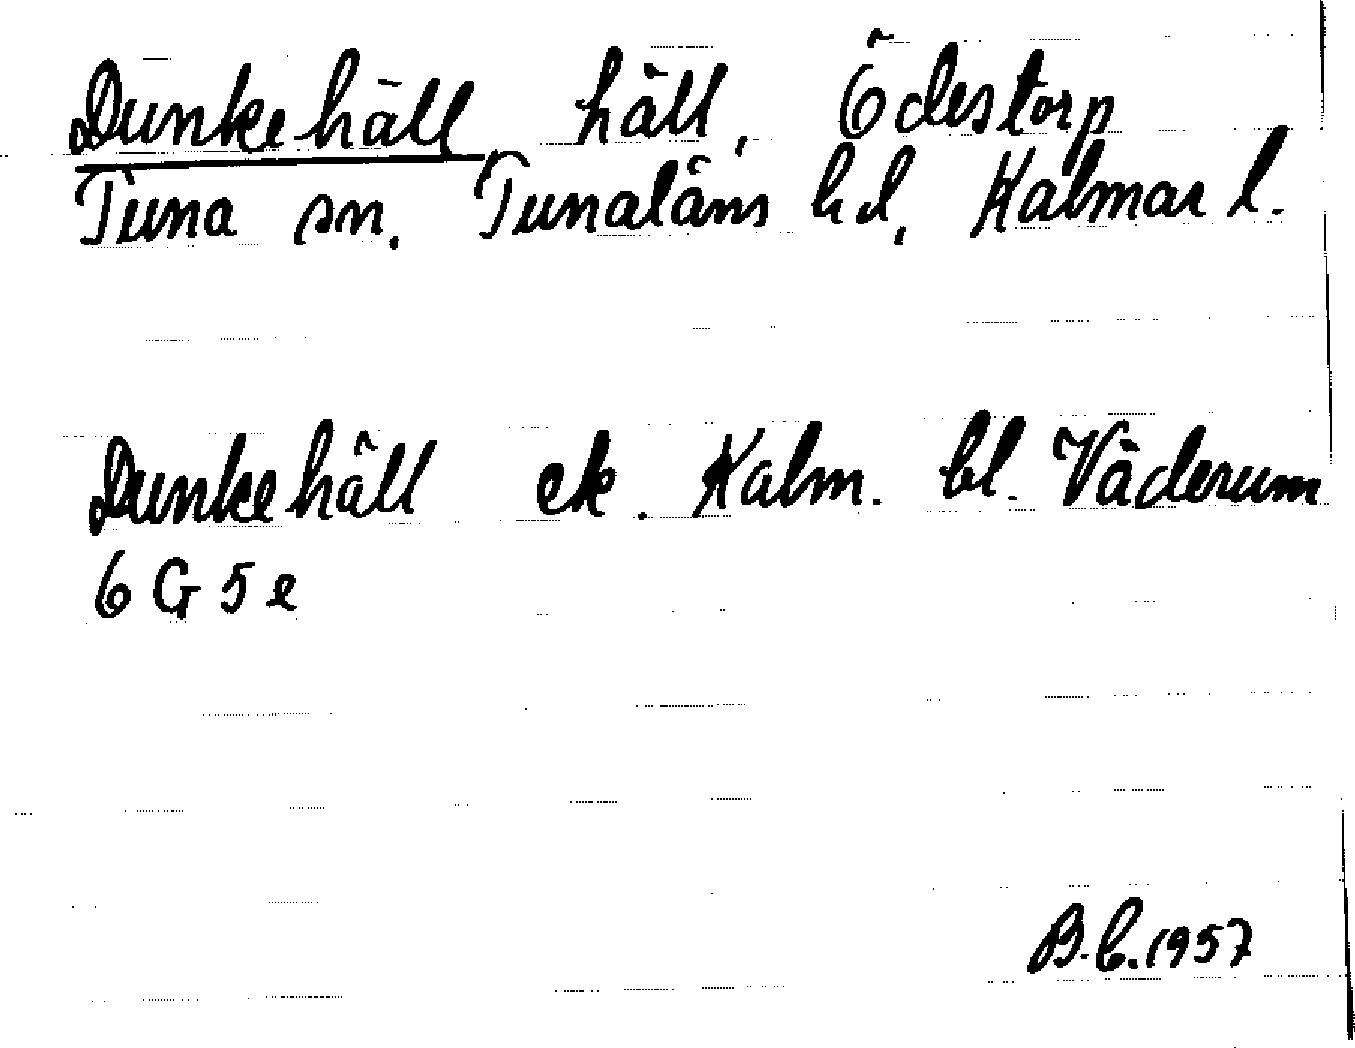 Dunkehäll häll, Ödestorp
Tuna sn. Tunaläns hd, Kalmar l.
Dunkehäll ek. Kalm. bl. Väderum
6 G 5 e
B.C. 1957